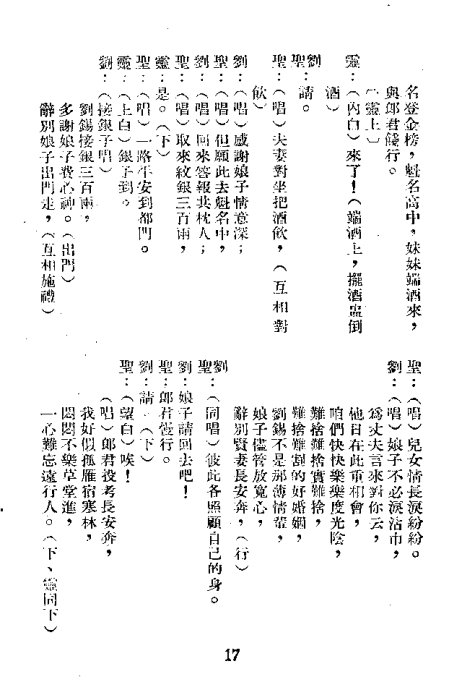 名登金榜，魁名高中，妹妹端酒來，
與郎君餞行。
（靈上）
靈：（內白）來了！（端酒上，擺酒盅倒
酒）
劉
聖：請。
聖：（唱）夫妻對坐把酒飲，（互相對
飲）
劉：（唱）感謝娘子情意深；
聖：（唱）但願此去魁名中，
劉：（唱）回來答報共枕人；
聖：（唱）取來紋銀三百兩，
靈：是。（下）
聖：（唱）一路平安到都門。
靈：（上白）銀子到。
劉：（接銀子唱）
劉錫接銀三百兩，
多謝娘子費心神。（出門）
辭別娘子出門走，（互相施禮）
聖：（唱）兒女情長淚紛紛。
劉：（唱）娘子不必淚沾巾，
爲丈夫言來對你云，
他日在此重相會，
咱們快快樂樂度光陰，
難捨難捨實難捨，
難捨難割的好婚姻，
劉錫不是那薄情輩，
娘子儘管放寬心，
辭別賢妻長安奔，（行）
劉
聖：（同唱）彼此各照顧自己的身。
劉：娘子請回去吧！
聖：郎君慢行。
劉：請。（下）
聖：（望白）唉！
（唱）郎君投考長安奔，
我好似孤雁宿寒林，
悶悶不樂草堂進，
一心難忘遠行人。（下、靈同下）
17